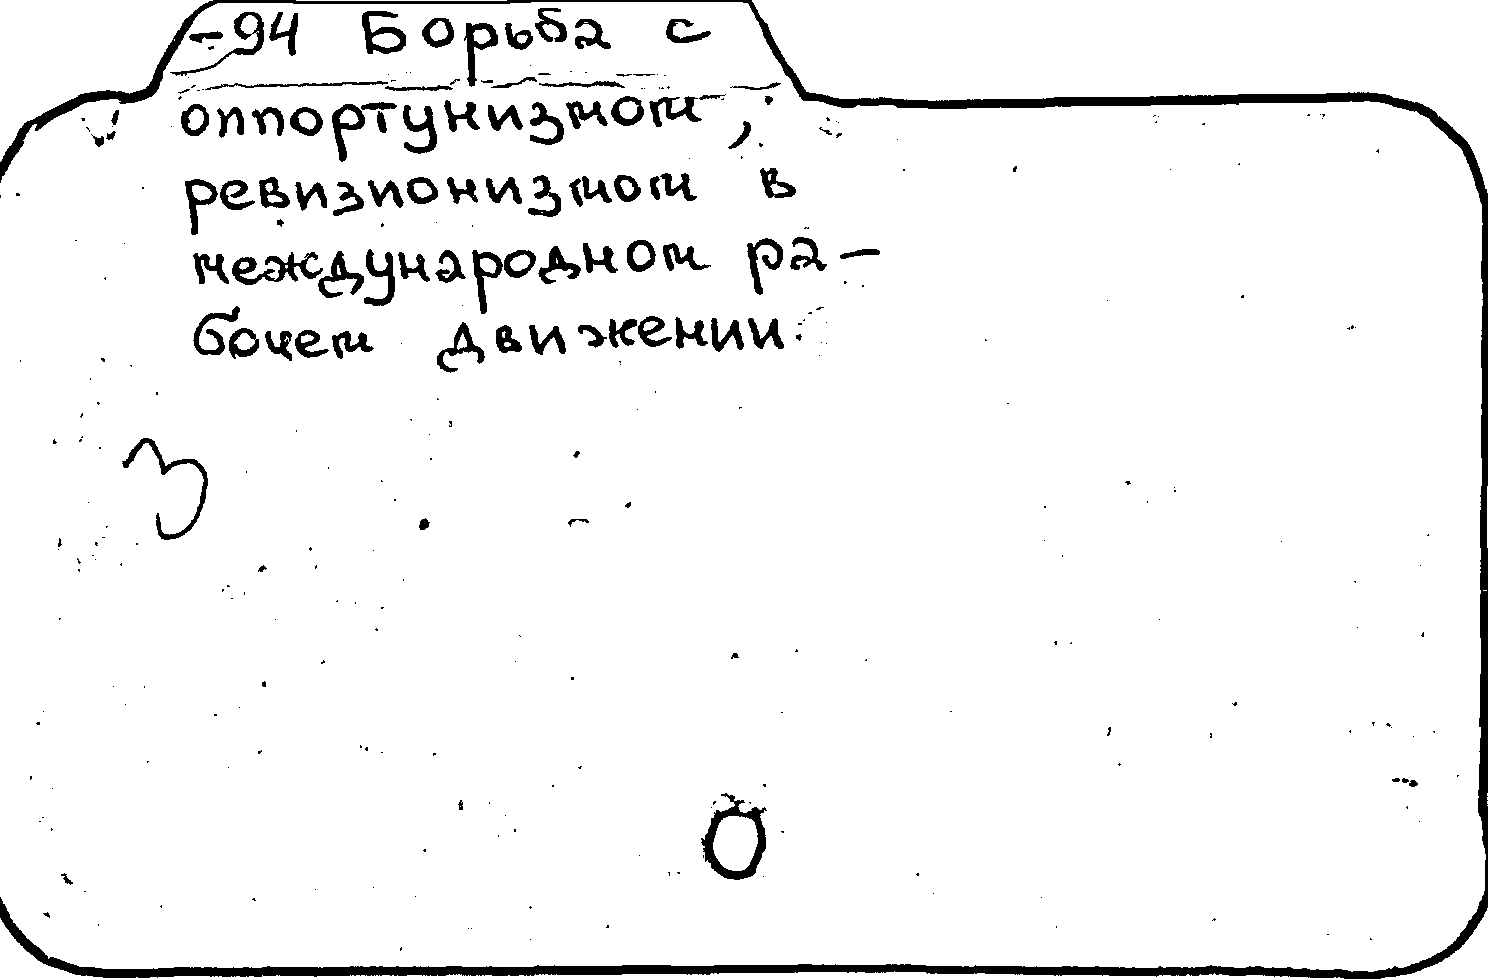 -94 Борьба с
оппортунизмом,
ревизионизмом в
международном ра-
бочем движении.
З